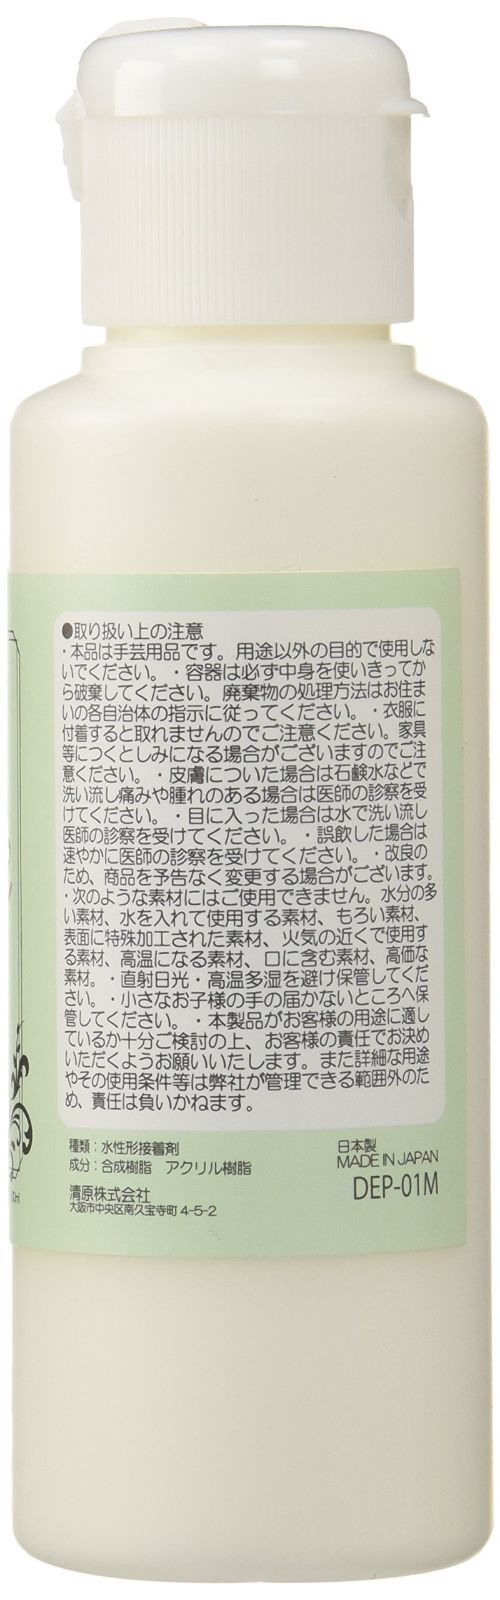 ●取り扱い上の注意
・本品は手芸用品です。用途以外の目的で使用しな
いでください。・容器は必ず中身を使いきってか
ら破棄してください。廃棄物の処理方法はお住ま
いの各自治体の指示に従ってください。・衣服に
付着すると取れませんのでご注意ください。家具
等につくとしみになる場合がございますのでご注
意ください。・皮膚についた場合は石鹸水などで
洗い流し痛みや腫れのある場合は医師の診察を受
けてください。・目に入った場合は水で洗い流し
医師の診察を受けてください。・誤飲した場合は
速やかに医師の診察を受けてください。・改良の
ため、商品を予告なく変更する場合がございます。
・次のような素材にはご使用できません。水分の多
い素材、水を入れて使用する素材、もろい素材、
表面に特殊加工された素材、火気の近くで使用す
る素材、高温になる素材、口に含む素材、高価な
素材。・直射日光・高温多湿を避け保管してくだ
さい。・小さなお子様の手の届かないところへ保
管してください。・本製品がお客様の用途に適し
ているか十分ご検討の上、お客様の責任でお決め
いただくようお願いいたします。また詳細な用途
やその使用条件等は弊社が管理できる範囲外のた
め、責任は負いかねます。
種類：水性形接着剤
成分：合成樹脂 アクリル樹脂
日本製
MADE IN JAPAN
清原株式会社
大阪市中央区南久宝寺町 4-5-2
DEP-01M